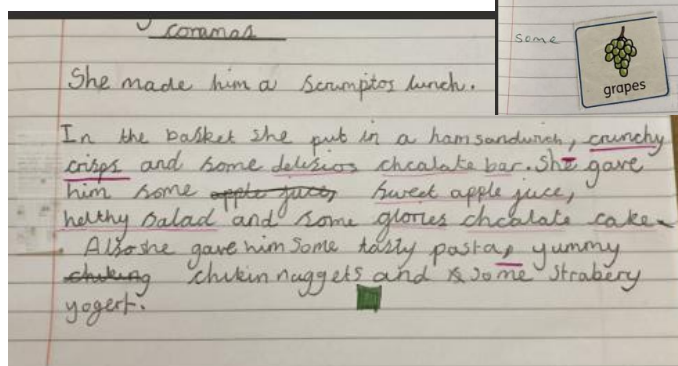 some
grapes
coramas
She made him a scrumptos lunch.
In the basket she put in a ham sandwich, crunchy
crisps and some delisios chcalate bar. She gave
him some apple juce, sweet apple juice,
helthy salad and some glories chcalate cake.
Also she gave him some tasty pasta, yummy
chuking chukin nuggets and some strabery
yogert.